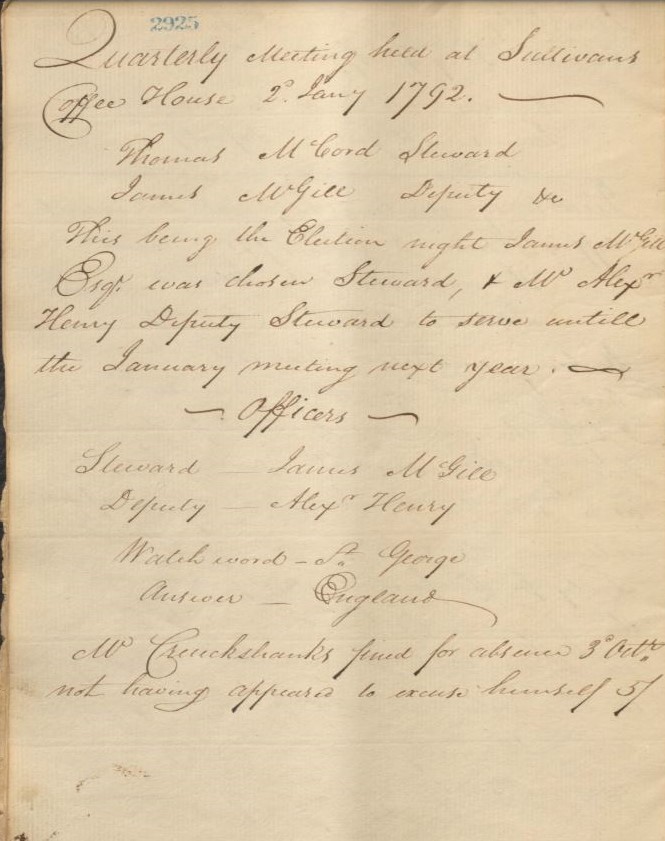 2925
Quarterly Meeting held at Sullivans
Coffee House 2d. Jany 1792.
Thomas McCord Steward
James McGill Deputy &c
This being the Election night James McGill
Esqr. was chosen Steward, & Mr Alexr
Henry Deputy Steward to serve untill
the January meeting next year.
Officers
Steward — James McGill
Deputy — Alexr Henry
Watch word – St. George
Answer — England
Mr Cruickshanks fined for absence 3d Octr.
not having appeared to excuse himself 5/